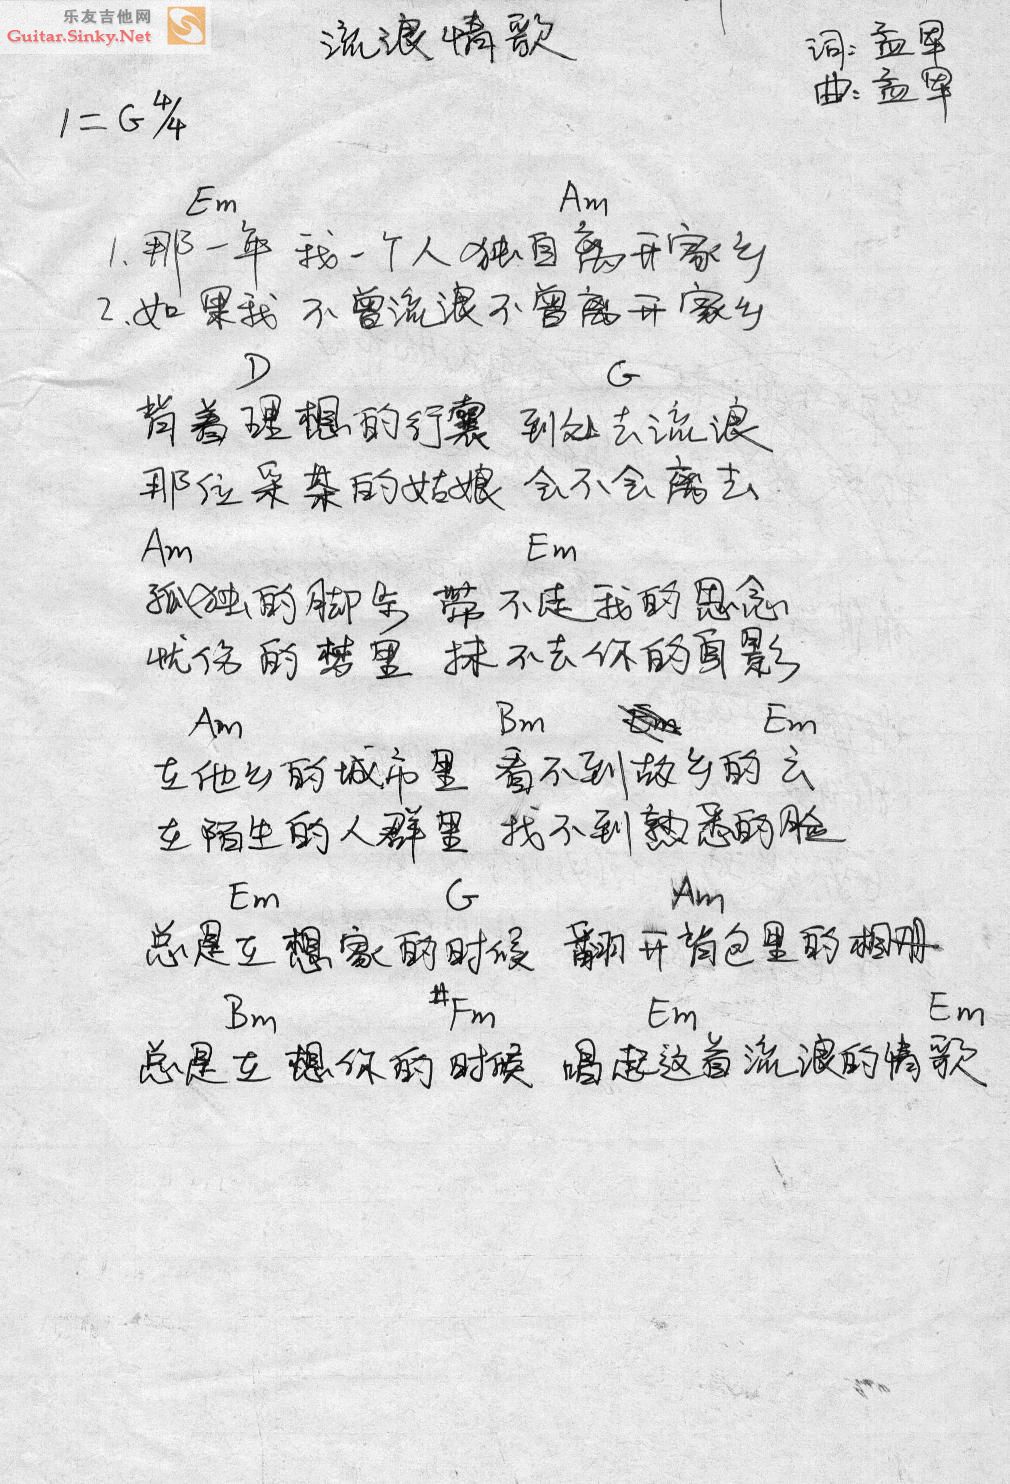 乐友吉他网
Guitar.Sinky.Net
流浪情歌
词:孟军
曲:孟军
1=G 4/4
Em Am
1.那一年 我一个人独自离开家乡
2.如果我 不曾流浪不曾离开家乡
D G
背着理想的行囊 到处去流浪
那位采茶的姑娘 会不会离去
Am Em
孤独的脚步 带不走我的思念
忧伤的梦里 抹不去你的身影
Am Bm Em
在他乡的城市里 看不到故乡的云
在陌生的人群里 找不到熟悉的脸
Em G Am
总是在想家的时候 翻开背包里的相册
Bm #Fm Em Em
总是在想你的时候 唱起这首流浪的情歌